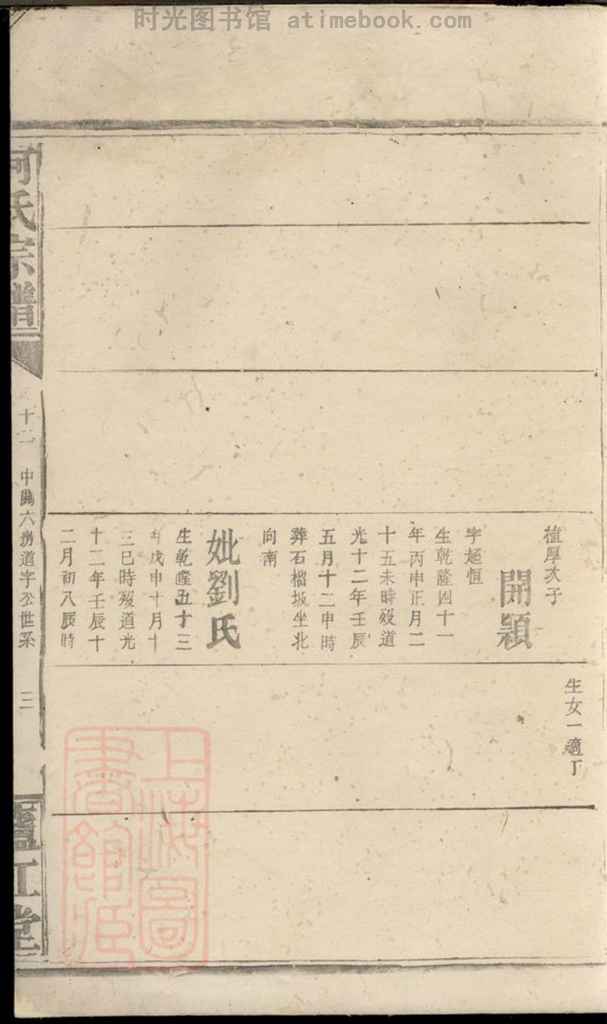 时光图书馆 atimebook.com
生女一適丁
植厚次子
開穎
字超恒
生乾隆四十一
年丙申正月二
十五未時歿道
光十二年壬辰
五月十二申時
葬石榴坂坐北
向南
妣劉氏
生乾隆五十三
年戊申十月十
三巳時歿道光
十二年壬辰十
二月初八辰時
何氏宗譜
十二
中興六房道字公世系
三
廬江堂
上海圖
書館藏